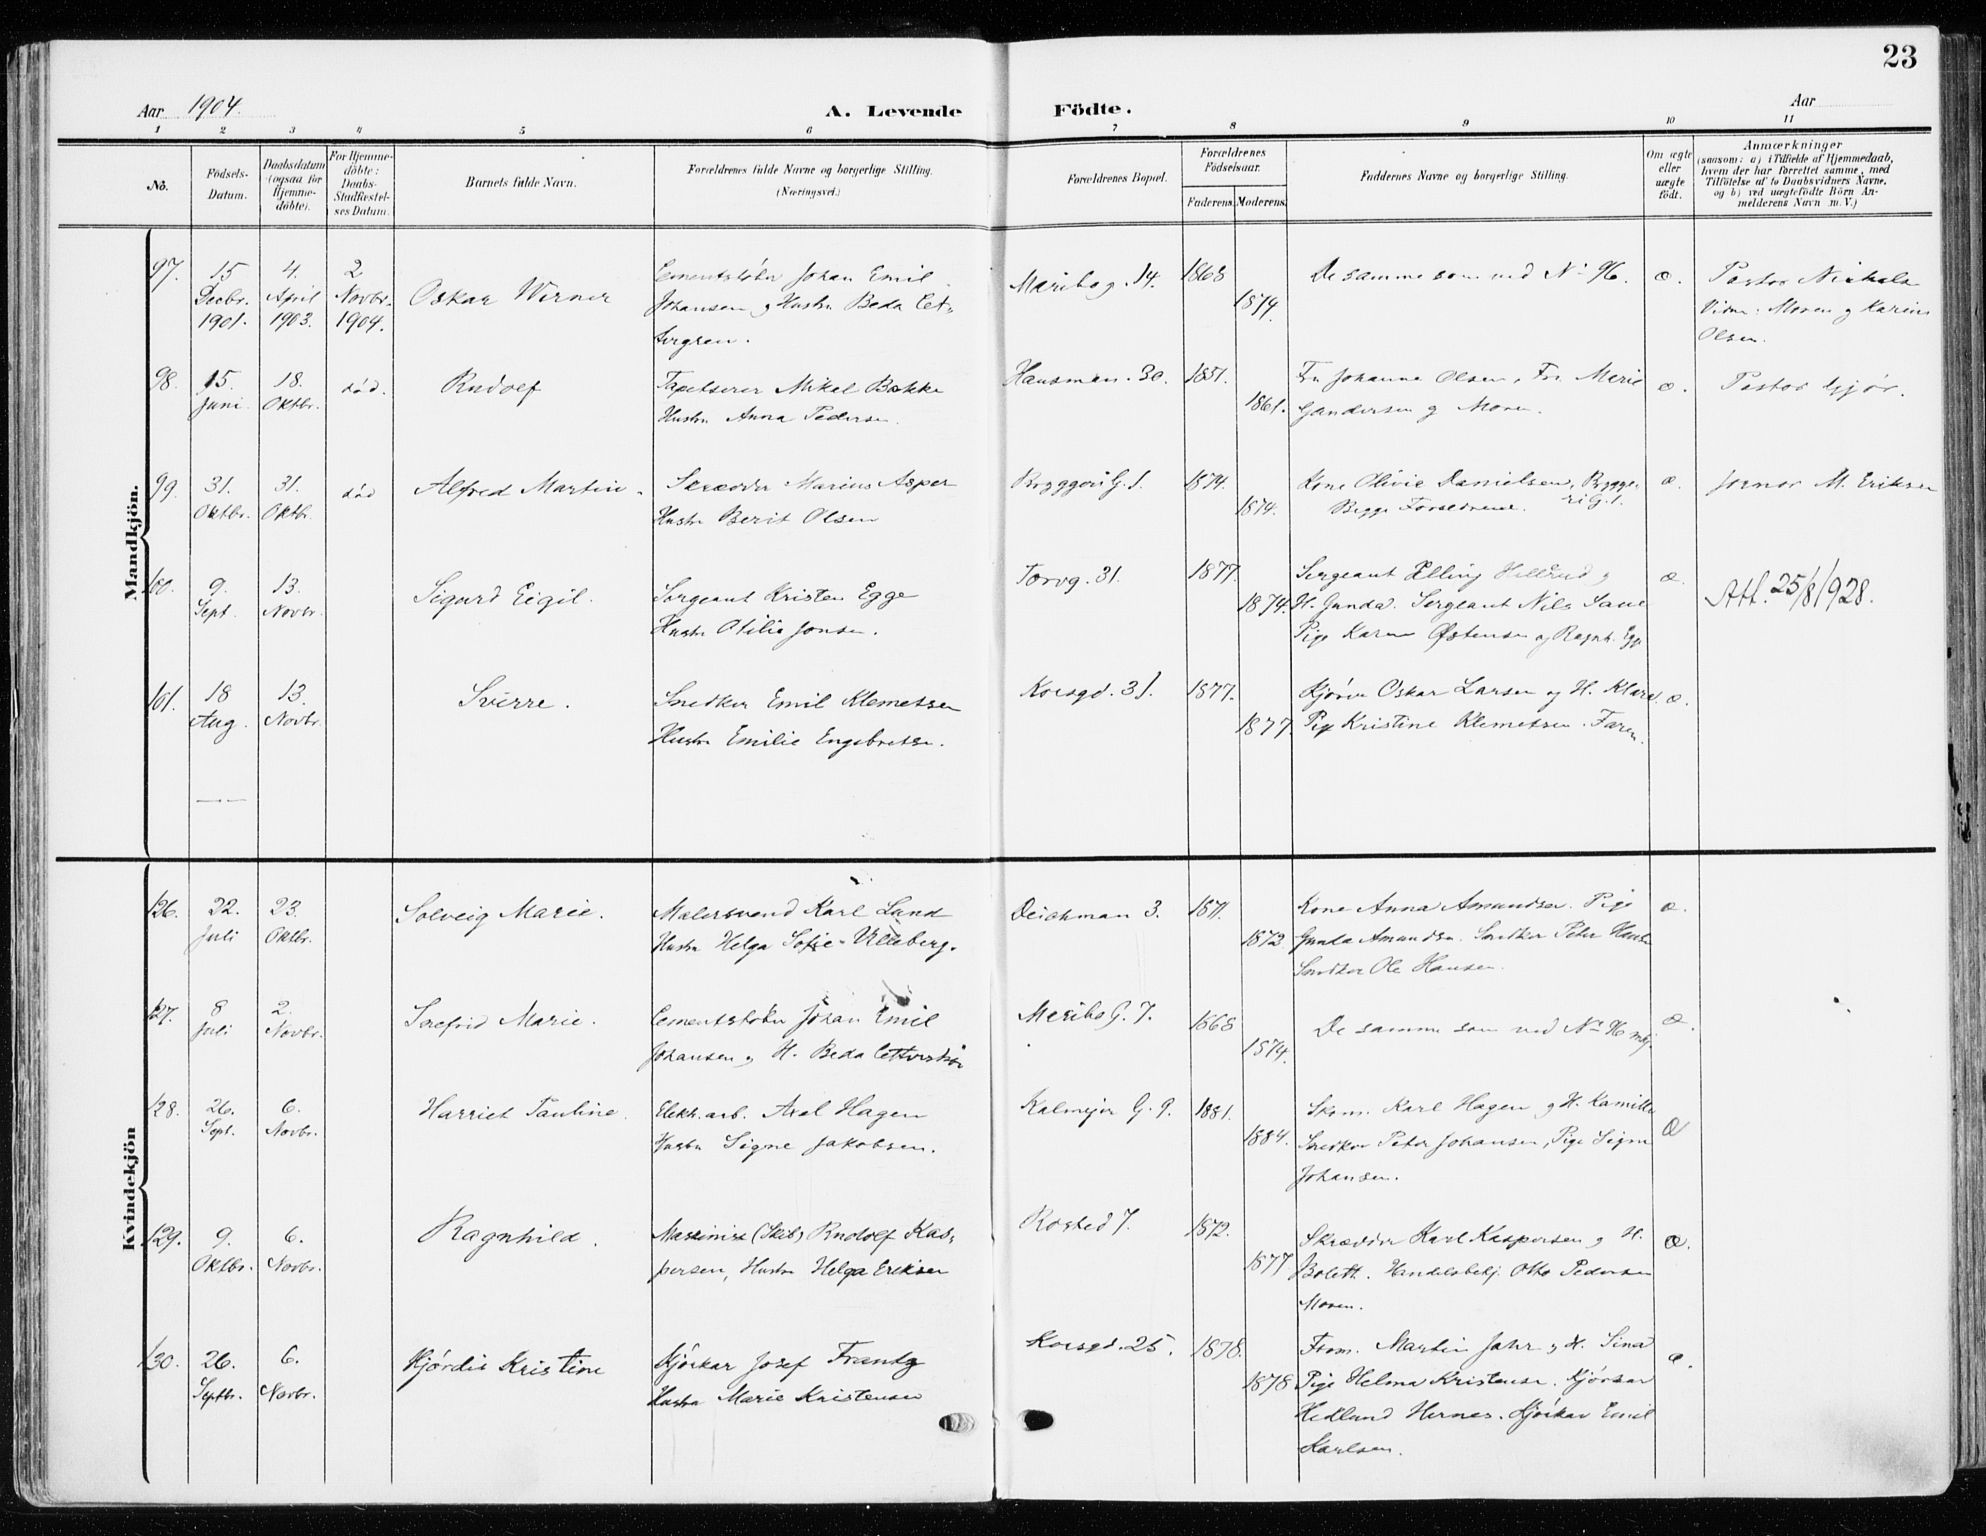 23
Aar 1904.
A. Levende Födte.
Aar
1 2 3 4 5 6 7 8 9 10 11
No.
Födsels-
Datum.
Daabsdatum
(ogsaa for
Hjemme-
döbte).
For Hjemme-
döbte:
Daabs-
Stadfæstel-
ses Datum.
Barnets fulde Navn.
Forældrenes fulde Navne og borgerlige Stilling.
(Næringsvei.)
Forældrenes Bopæl.
Forældrenes
Födselsaar.
Faderens. Moderens.
Faddernes Navne og borgerlige Stilling.
Om ægte
eller
uægte
födt.
Anmærkninger
(saasom: a) i Tilfælde af Hjemmedaab,
hvem der har forrettet samme, med
Tilföielse af to Daabsvidners Navne,
og b) ved uægtefödte Börn An-
melderens Navn m. V.)
Mandkjön.
97.
15 Decbr. 1901.
4. April 1903.
2 Novbr. 1904.
Oskar Werner
Cementstøber Johan Emil
Johansen og Hustru Beda
Maribog. 14.
1868
1874.
De samme som ved No 96.
æ.
Pastor
Vidne: Moren og Karine
Olsen.
98.
15. Juni.
18. Oktbr.
død.
Rudolf
Tapetserer Mikel Bakke
Hustru Anna Pedersen.
Hausman. 30.
1851.
1861.
Fru Johanne Olsen, Fru Marie
Gundersen og Moren.
æ.
Pastor Gjør.
99.
31. Oktbr.
31. Oktbr.
død
Alfred Martin.
Skrædder Marius Asper
Hustru Berit Olsen
Bryggeri G. 1.
1874.
1874.
Kone Olivie Danielsen, Brygge-
ri G. 1.
Begge Forældrene.
æ.
Jormor M. Eriksen
100.
9. Sept.
13. Novbr.
Sigurd Eigil.
Sergeant Kristen Egge
Hustru Otilie Jonsen.
Torvg. 31.
1877.
1874.
Sergeant Elling Hillrud og
H. Gunda. Sergeant Nils
Pige Karen Østensen og Ragnh. Egge
æ.
Att. 25/8 1928.
101.
18 Aug.
13. Novbr.
Sverre.
Snedker Emil Klemetsen
Hustru Emilie Engebretsen.
Korsgd. 31.
1877.
1877.
Kjører Oskar Larsen og H. Klara.
Pige Kristine Klemetsen. Faren.
æ.
Kvindekjön
126.
22. Juli
23. Oktbr.
Solveig Marie.
Malersvend Karl Lund
Hustru Helga Sofie Ulleberg.
Deichman 3.
1871.
1872
Kone Anna Amundsen. Pige
Gunda Amundsen. Snedker Peter Hansen
Snedker Ole Hansen.
æ.
127.
8 Juli
2. Novbr.
Snefrid Marie.
Cementstøber Johan Emil
Johansen og H. Beda
Maribo G. 7.
1868
1874.
De samme som ved No
æ.
128.
26. Sept.
6. Novbr.
Harriet Pauline.
Elektr. arb. Axel Hagen
Hustru Signe Jakobsen.
Kalmeyer G. 9.
1881.
1884.
Skom. Karl Hagen og H. Kamilla
Snedker Peter Johansen, Pige Signe
Johansen.
Æ
129.
9. Oktbr.
6. Novbr.
Ragnhild.
Maskinist (Skib) Rudolf Kas-
persen, Hustru Helga Eriksen
Rosted 7.
1872.
1877
Skrædder Karl Kaspersen og H.
Bolett. Handelsbetj. Otto Pedersen
Moren.
æ.
130.
26. Septbr.
6. Novbr.
Hjørdis Kristine
Hjørkar Josef Frantz
Hustru Marie Kristensen
Korsgd. 25.
1878.
1878
Form. Martin Jahr og H. Sina
Pige Helma Kristensen.
Hedlund Hernes. Emil
Karlsen.
æ.